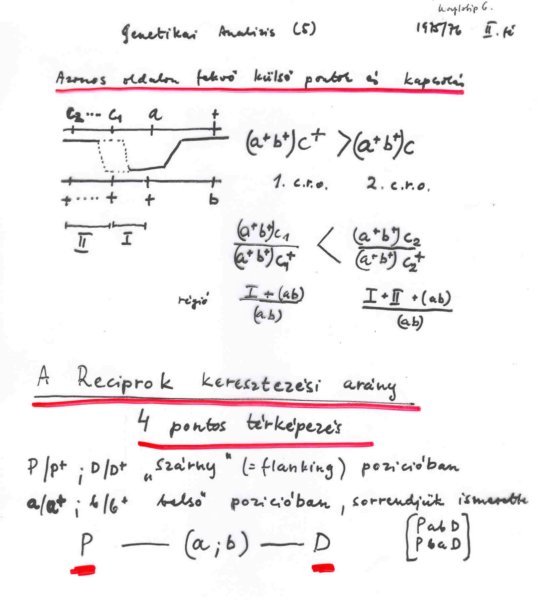 Genetikai Analízis (5) 1975/76 II. fé
Azonos oldalon fekvő külső pontok és kapcsolás
c₂ ... c₁ a +
(a⁺b⁺)c⁺ > (a⁺b⁺)c
1. c.r.o. 2. c.r.o.
+ .... + + b
II I
(a⁺b⁺)c₁ < (a⁺b⁺)c₂
(a⁺b⁺)c₁⁺ (a⁺b⁺)c₂⁺
régió I + (ab) I + II + (ab)
(ab) (ab)
A Reciprok keresztezési arány
4 pontos térképezés
P/p⁺ ; D/D⁺ „szárny" (= flanking) pozicióban
a/a⁺ ; b/b⁺ belső pozicióban, sorrendjük
P — (a ; b) — D
[P a b D
P b a D]